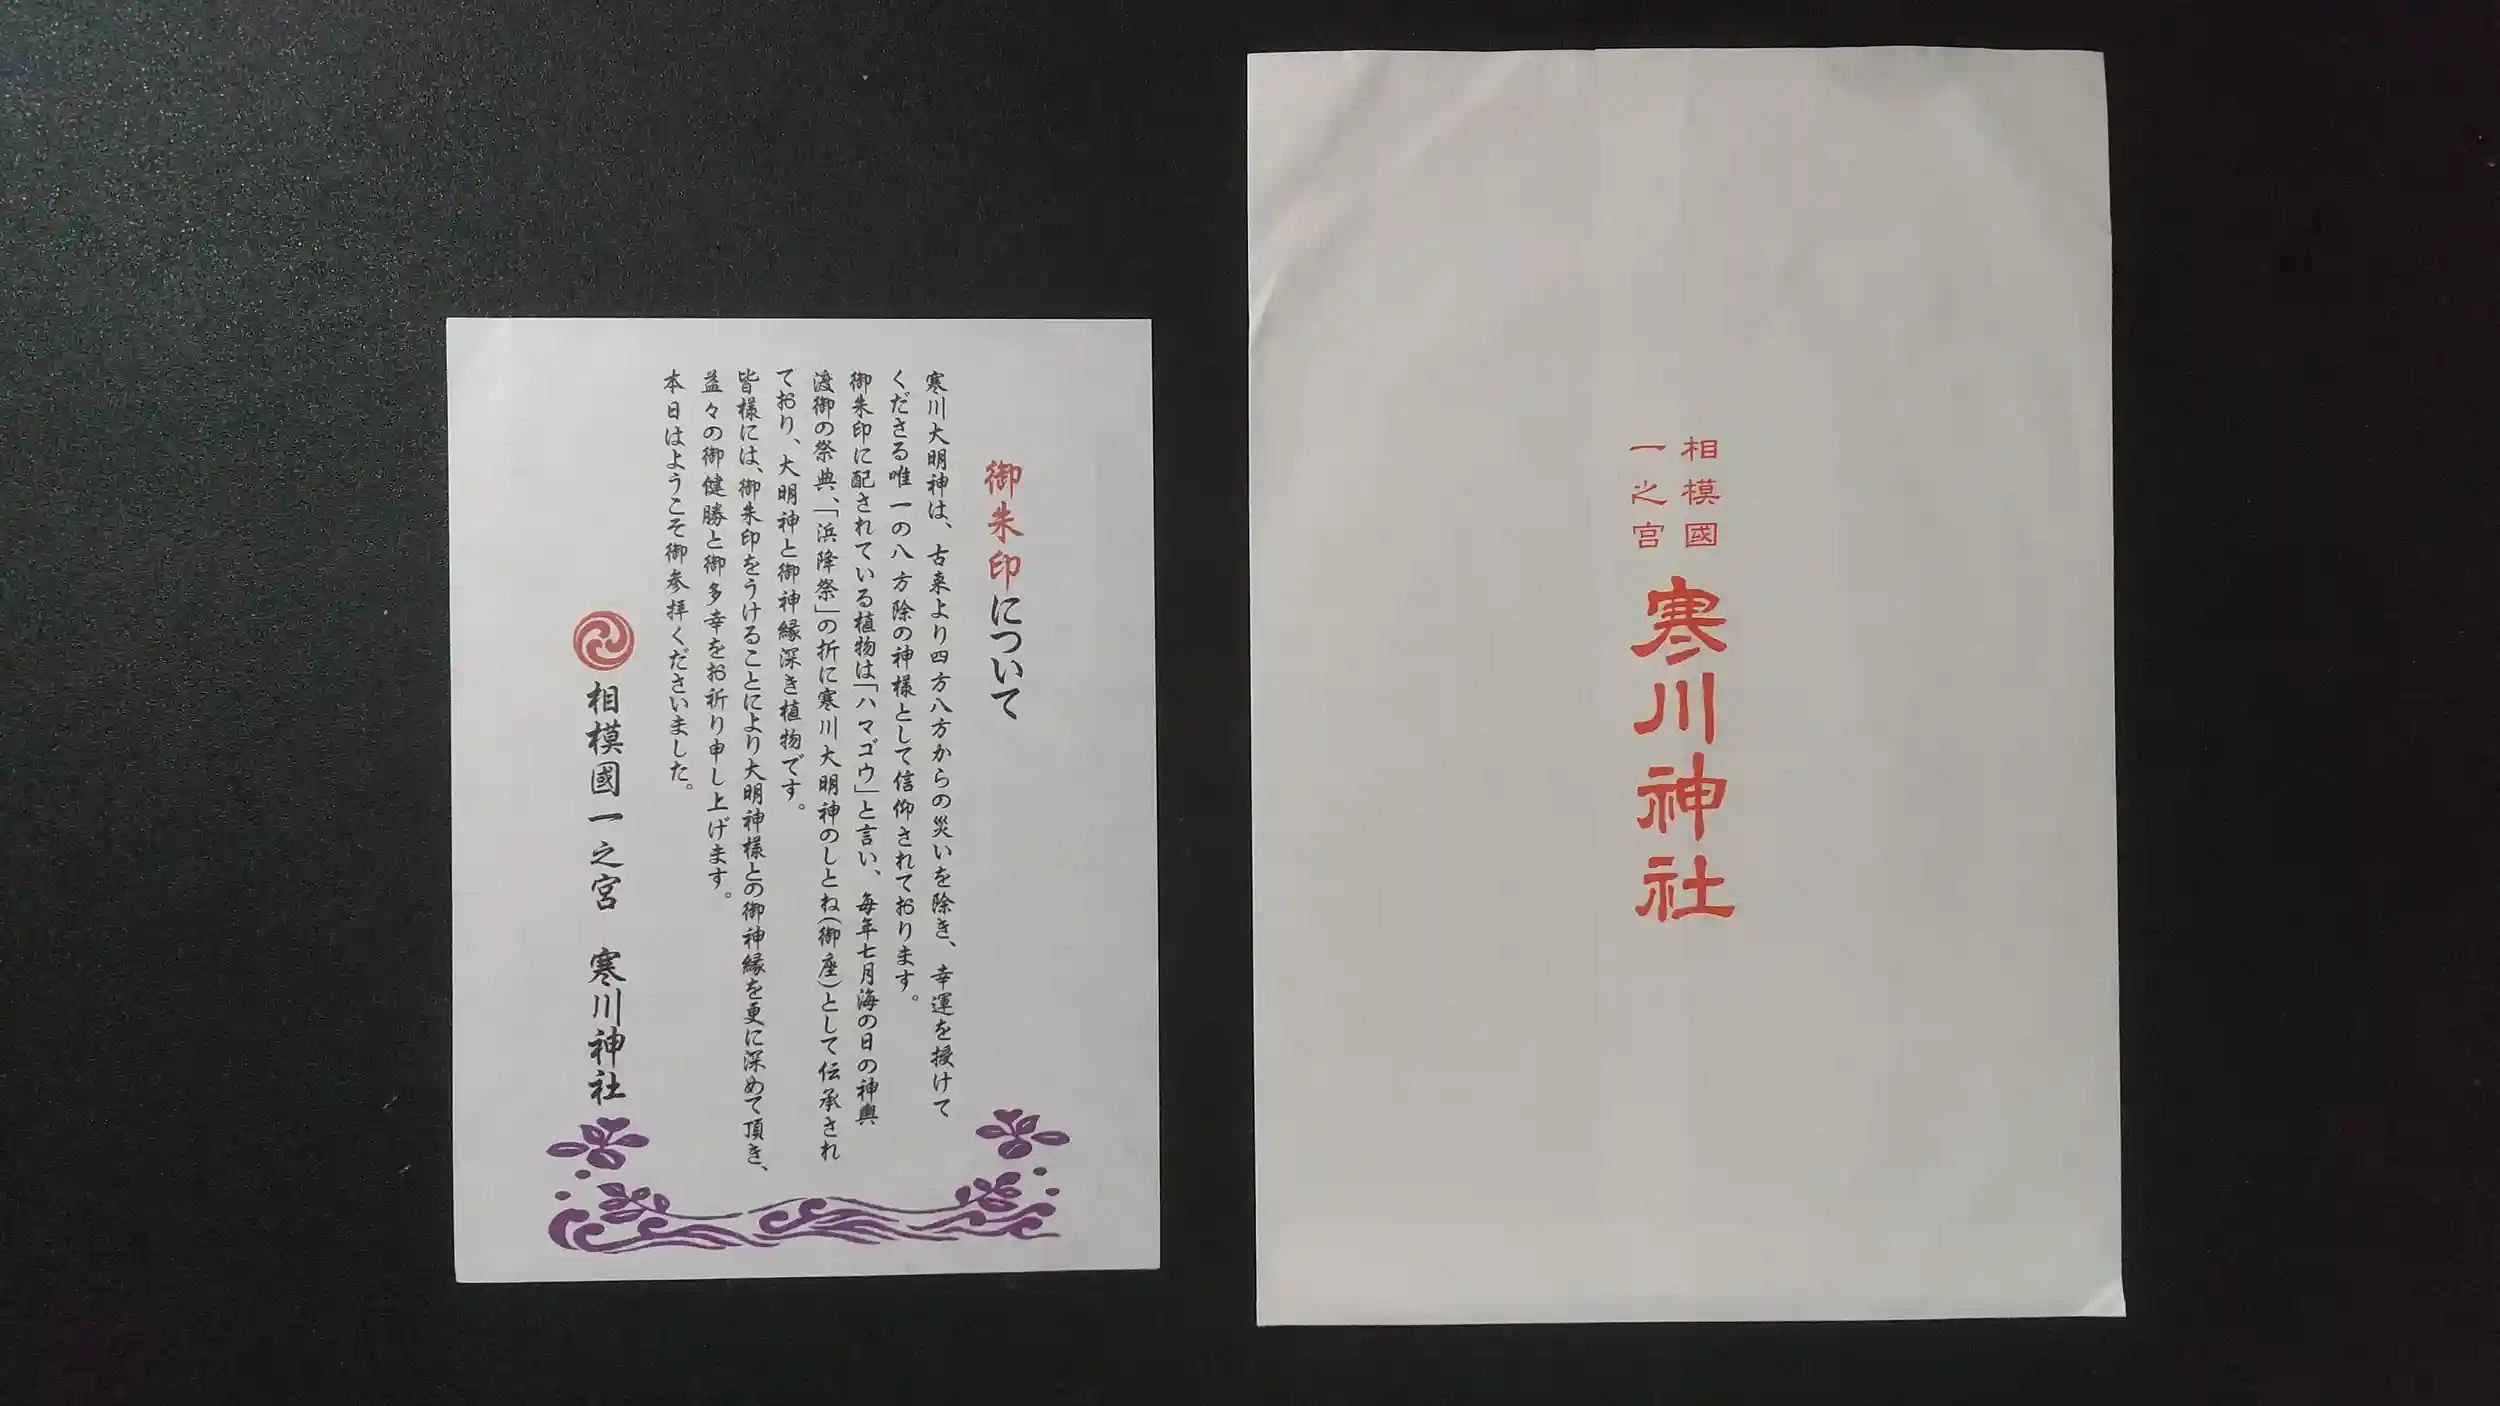 御朱印について
寒川大明神は、古来より四方八方からの災いを除き、幸運を授けて
くださる唯一の八方除の神様として信仰されております。
御朱印に配されている植物は「ハマゴウ」と言い、毎年七月海の日の神輿
渡御の祭典、「浜降祭」の折に寒川大明神のしとね(御座)として伝承され
ており、大明神と御神縁深き植物です。
皆様には、御朱印をうけることにより大明神様との御神縁を更に深めて頂き、
益々の御健勝と御多幸をお祈り申し上げます。
本日はようこそ御参拝くださいました。
相模國一之宮 寒川神社
相模國
一之宮
寒川神社